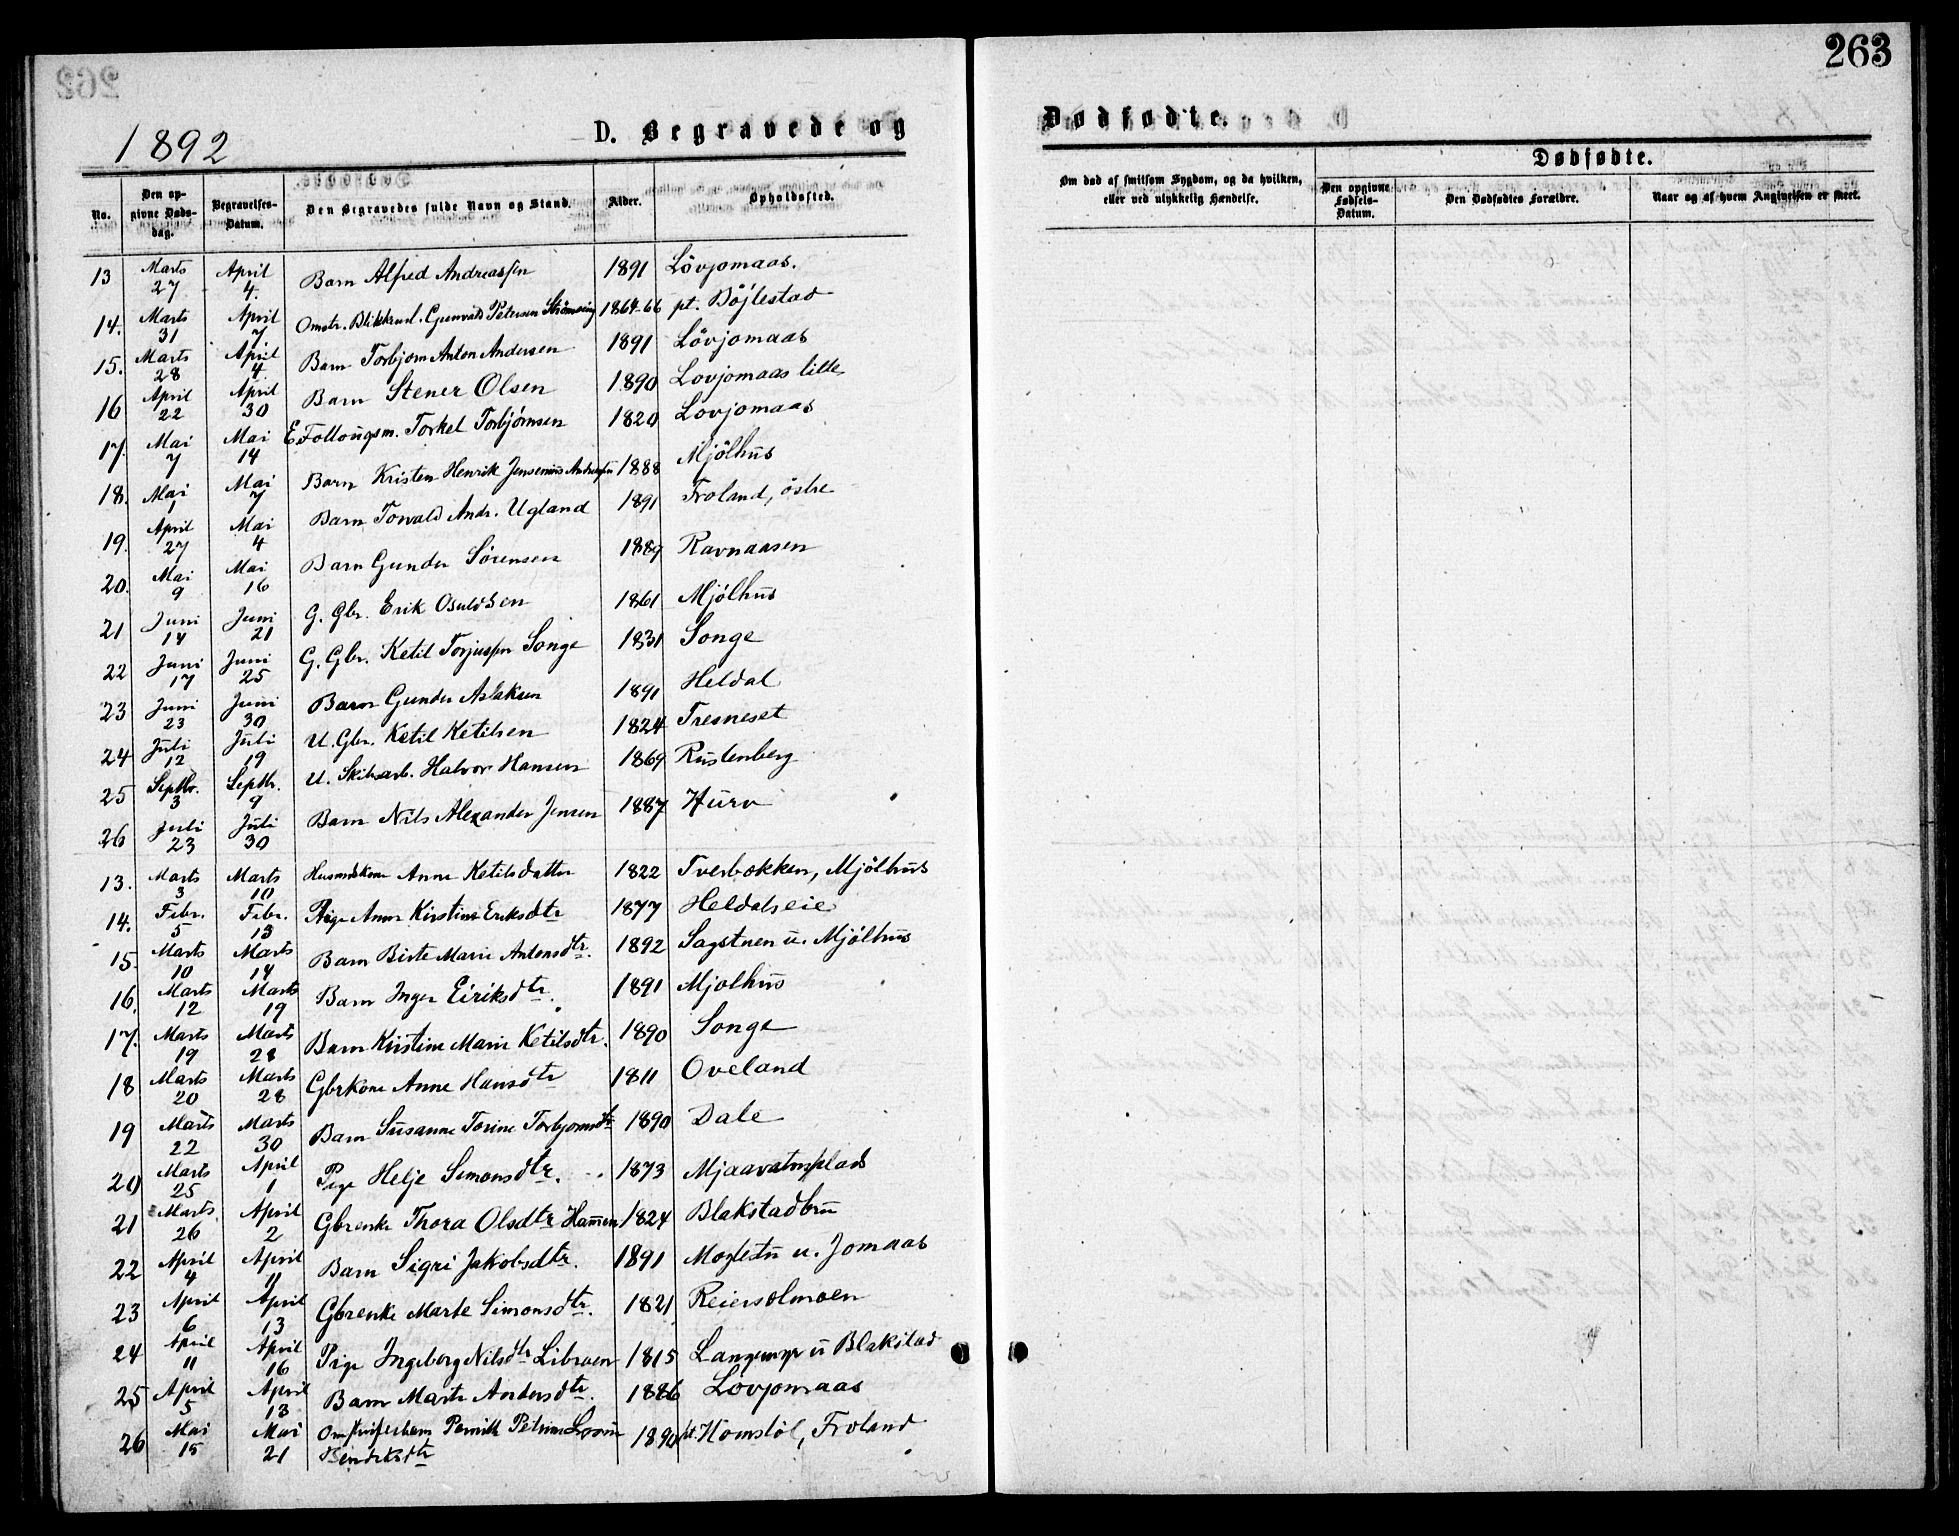 263
1892
D. Begravede og
Dødfødte.
No.
Den opgivne Dødsdag.
Begravelses-Datum.
Den Begravedes fulde Navn og Stand.
Alder.
Opholdssted.
Om død af smitsom Sygdom, og da hvilken, eller ved ulykkelig Hændelse.
Dødfødte.
Den opgivne Fødsels-Datum.
Den Dødfødtes Forældre.
Naar og af hvem Angivelsen er skeet.
13 Marts 27 April 4. Barn Alfred Andreassen 1891 Lövjomaas.
14. Marts 31 April 7 Omstr. Gunvald Petersen 1864-66 pt. Böjlestad
15. Marts 28 April 4 Barn Torbjørn Anton Andersen 1891 Lövjomaas
16 April 22 April 30 Barn Stener Olsen 1890 Lovjomaas lille
17. Mai 7 Mai 14 E. Follougsm. Torkel Torbjörnsen 1820 Lovjomaas
18. Mai 1 Mai 7 Barn Kristen Henrik Jensenius Andreassen 1888 Mjölhus
19. April 27 Mai 4 Barn Torvald Andr. Ugland 1891 Froland, östre
20. Mai 9 Mai 16 Barn Gunder Sörensen 1889 Ravnaasen
21 Juni 14 Juni 21 G. Gbr. Erik Osuldsen 1861 Mjölhus
22 Juni 17 Juni 25 G. Gbr. Ketil Torjussen Songe 1831 Songe
23 Juni 23 Juni 30 Barn Gunder Aslaksen 1891 Heldal
24 Juli 12 Juli 19 U. Gbr. Ketil Ketilsen 1824 Tresneset
25 Septbr. 3 Septbr. 9 U. Skibsarb. Halvor Hansen 1869 Rustenberg
26 Juli 23 Juli 30 Barn Nils Alexander Jensen 1887 Hurv
13. Marts 3 Marts 10 Husmdskone Anne Ketilsdatter 1822 Tverbækken, Mjölhus
14. Febr. 5 Febr. 13 Pige Anne Kirstine Eriksdtr 1877 Heldalseie
15. Marts 10 Marts 14 Barn Birte Marie Antonsdtr. 1892 Sagstuen u. Mjölhus
16. Marts 12 Marts 19 Barn Inger Eiriksdtr. 1891 Mjolhus
17. Marts 19 Marts 28 Barn Kirstine Marie Ketilsdtr. 1890 Songe
18 Marts 20 Marts 28 Gbrkone Anne Hansdtr 1811 Oveland
19 Marts 22 Marts 30 Barn Susanne Torine Torbjornsdtr 1890 Dale
20 Marts 25 April 1 Pige Helje Simonsdtr. 1873 Mjaavatnsplads
21 Marts 26 April 2 Gbrenke Thora Olsdtr Hansen 1824 Blakstadbru
22 April 4 April 11 Barn Sigri Jakobsdtr. 1891 u. Jomaas
23 April 6 April 13 Gbrenke Marte Simonsdtr. 1821 Reiersolmoen
24 April 11 April 16 Pige Ingeborg Nilsdtr Libroen 1815 u Blakstad
25 April 5 April 13 Barn Marte Andersdtr. 1886 Lovjomaas
26 Mai 15 Mai 21 Pernille Petrine 1890 pt. Homstöl, Froland
Bendiksdtr